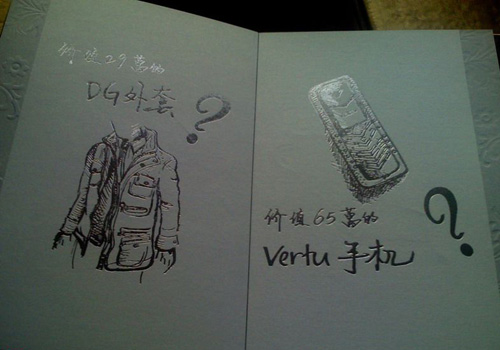 价值29萬的
DG外套?
价值65萬的
Vertu 手机?